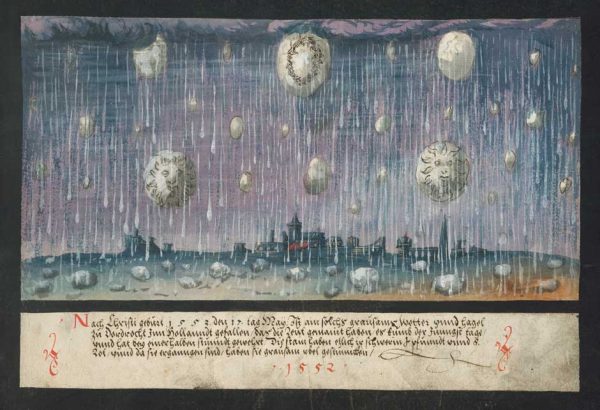 Nach Christi geburt 1552 den 17 tag May. Ist ain solchs grausams wetter vnnd hagel
zu Dordrecht Inn Hollanndt gefallen, das die leut gemaint haben es kumb der Jungst tag
vnnd hat bey einer halben stunndt gewehrt. Die stain haben ettlich gewegen pfundt vnnd
vnnd da sie zergangen sind, haben sie grausam vbel gestuncken
1552